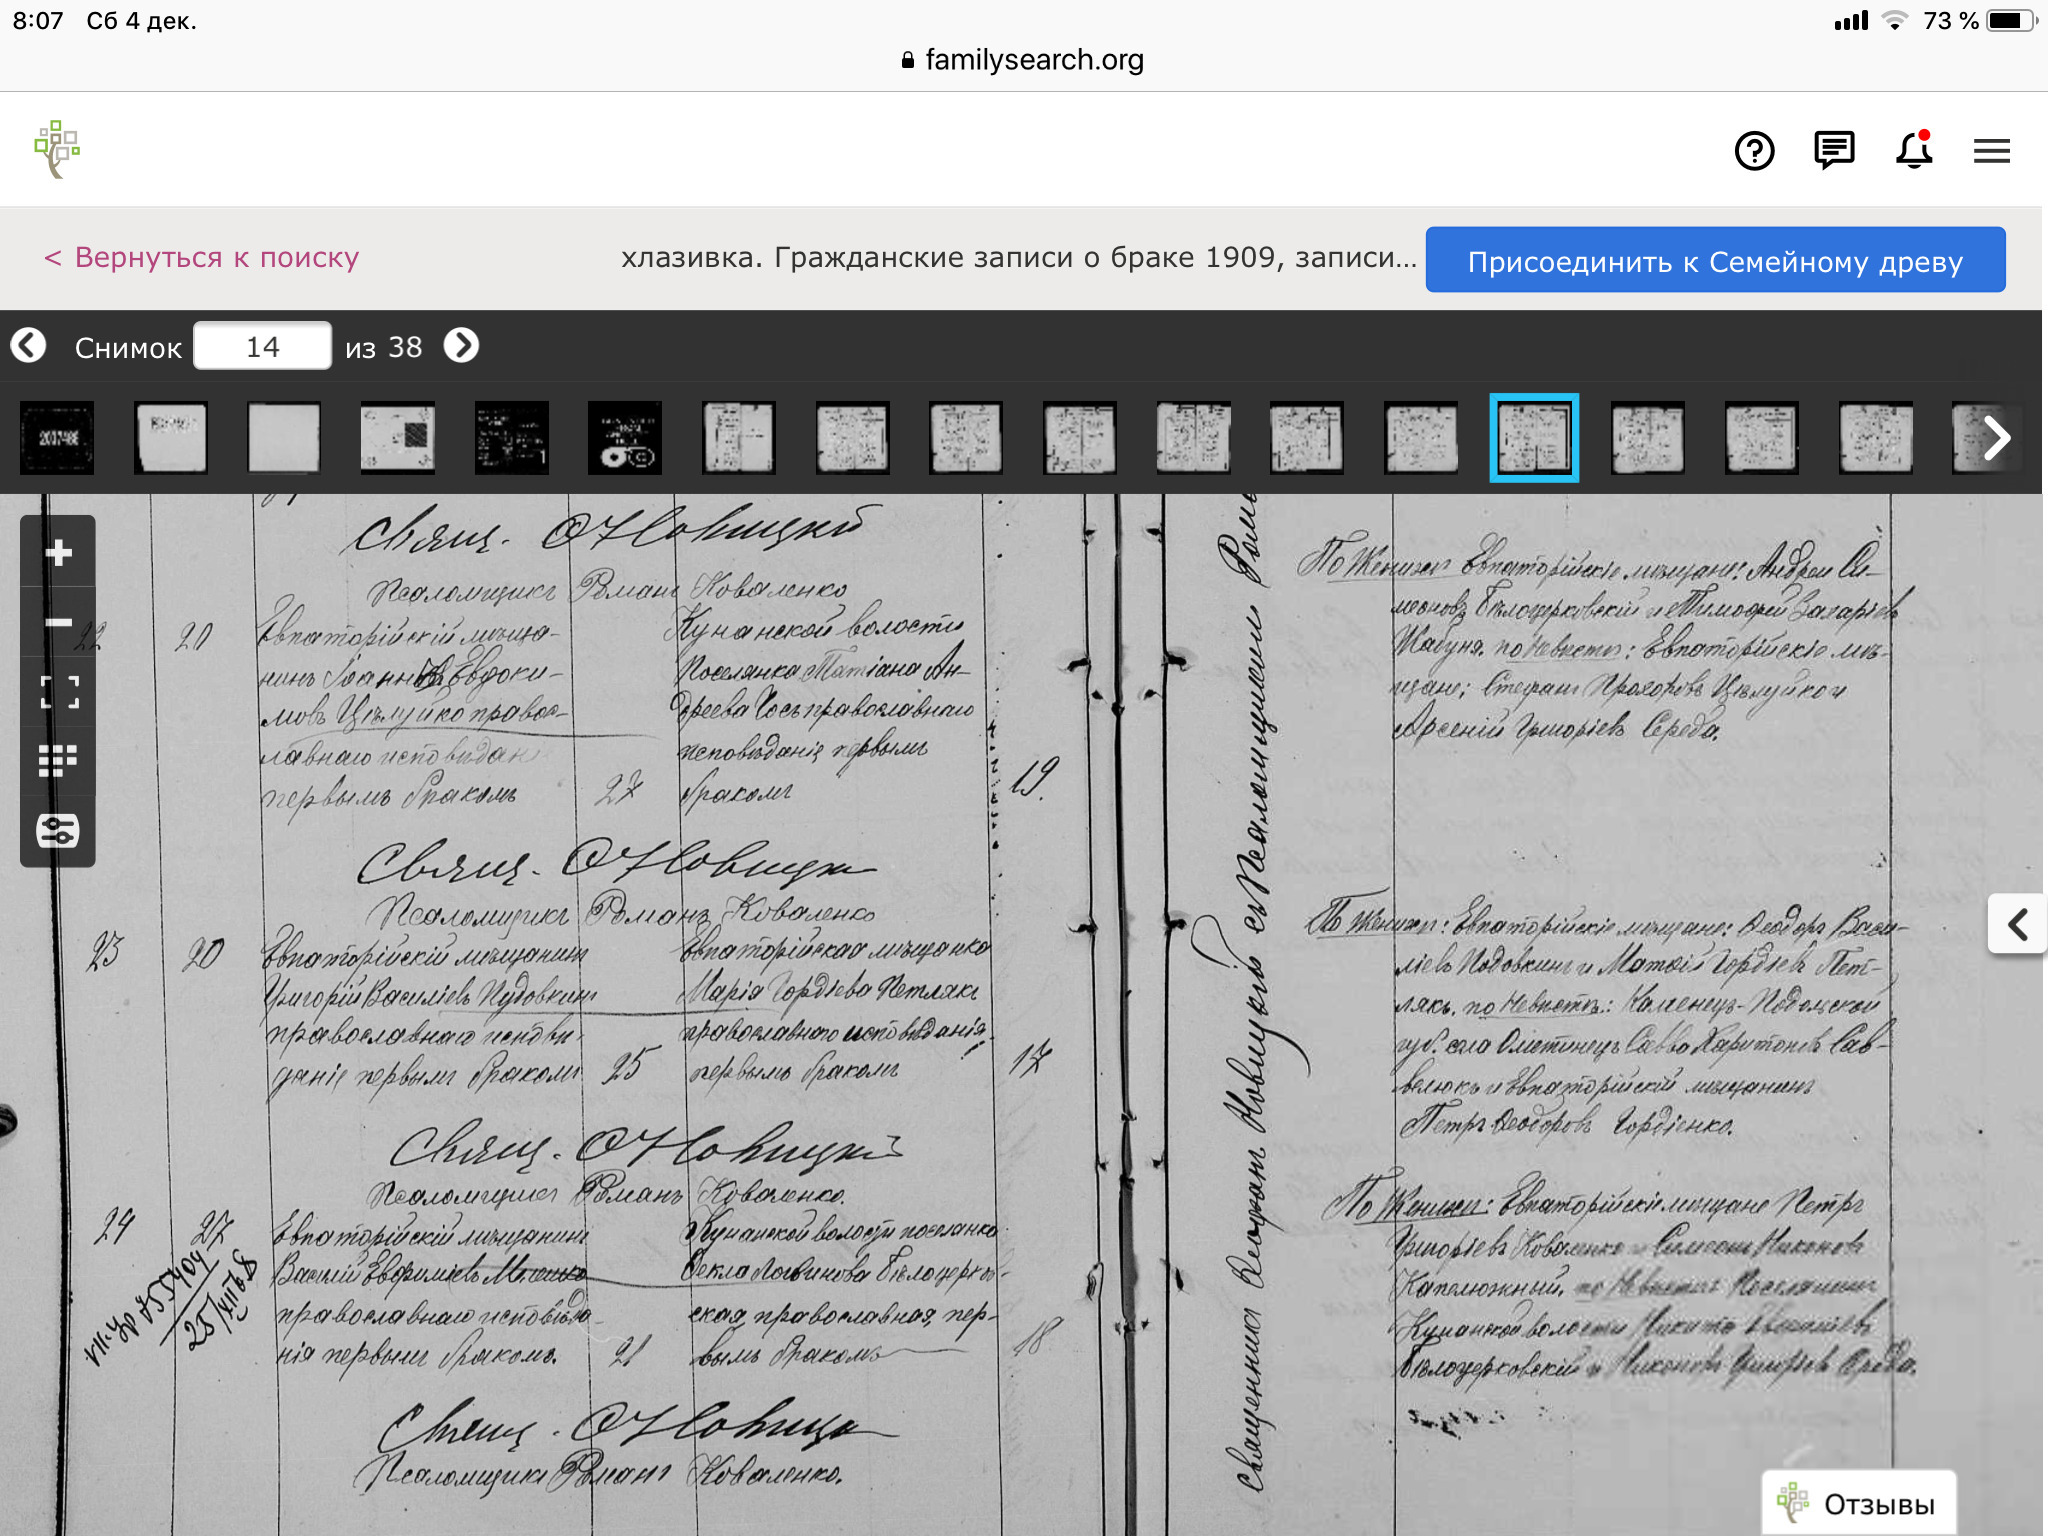 8:07 Сб 4 дек. 73 %
familysearch.org
< Вернуться к поиску
хлазивка. Гражданские записи о браке 1909, записи...
Присоединить к Семейному древу
Снимок 14 из 38
Свящ. Ѳ Новицкій
Псаломщикъ Романъ Коваленко
22
20
Евпаторійскій мѣща-
нинъ Іоаннъ Евдоки-
мовъ Цѣлуйко правос-
лавнаго исповѣдан
первымъ бракомъ
27
Кунанской волости
поселянка Татіана Ан-
дреева Гось православнаго
исповѣданія первымъ
бракомъ
19.
По Женихѣ Евпаторійскіе мѣщане: Андрей Си-
меоновъ Бѣлоцерковскій и Тимофей Захаріевъ
Шабуня. по Невѣстѣ: Евпаторійскіе мѣ-
щане: Стефанъ Прохоровъ Цѣлуйко и
Арсеній Григоріевъ Середа.
Свящ. Ѳ Новицкій
Псаломщикъ Романъ Коваленко
23
20
Евпаторійскій мѣщанинъ
Григорій Василіевъ Пудовкинъ
православнаго исповѣ-
даніе первымъ бракомъ
25
Евпаторійская мѣщанка
Марія Гордіева Петлякъ
православнаго исповѣданія,
первымъ бракомъ
17
По Женихѣ: Евпаторійскіе мѣщане: Ѳеодоръ Васи-
ліевъ Подовкинъ и Матѳій Гордіевъ Пет-
лякъ. по Невѣстѣ: Каменецъ-Подольской
губ. села Савва Харитоновъ Сав-
велюкъ и Евпаторійскій мѣщанинъ
Петръ Ѳеодоровъ Гордіенко.
Свящ. Ѳ Новицкій
Псаломщикъ Романъ Коваленко.
24
27
Евпаторійскій мѣщанинъ
Василій Евфиміевъ
православнаго исповѣда-
нія первымъ бракомъ.
21
Кунанской волости поселянка
Ѳекла Логвинова Бѣлоцерков-
ская, православная, пер-
вымъ бракомъ
18
По Женихѣ: Евпаторійскіе мѣщане Петръ
Григоріевъ Коваленко и Симеонъ Никоновъ
Капелюжный. по Невѣстѣ Поселянинъ
Кунанской волости Никита
Бѣлоцерковскій и Григоріевъ Середа.
Свящ. Ѳ Новицкій
Псаломщикъ Романъ Коваленко.
Священникъ Ѳеофанъ Новицкій съ Псаломщикомъ
Отзывы